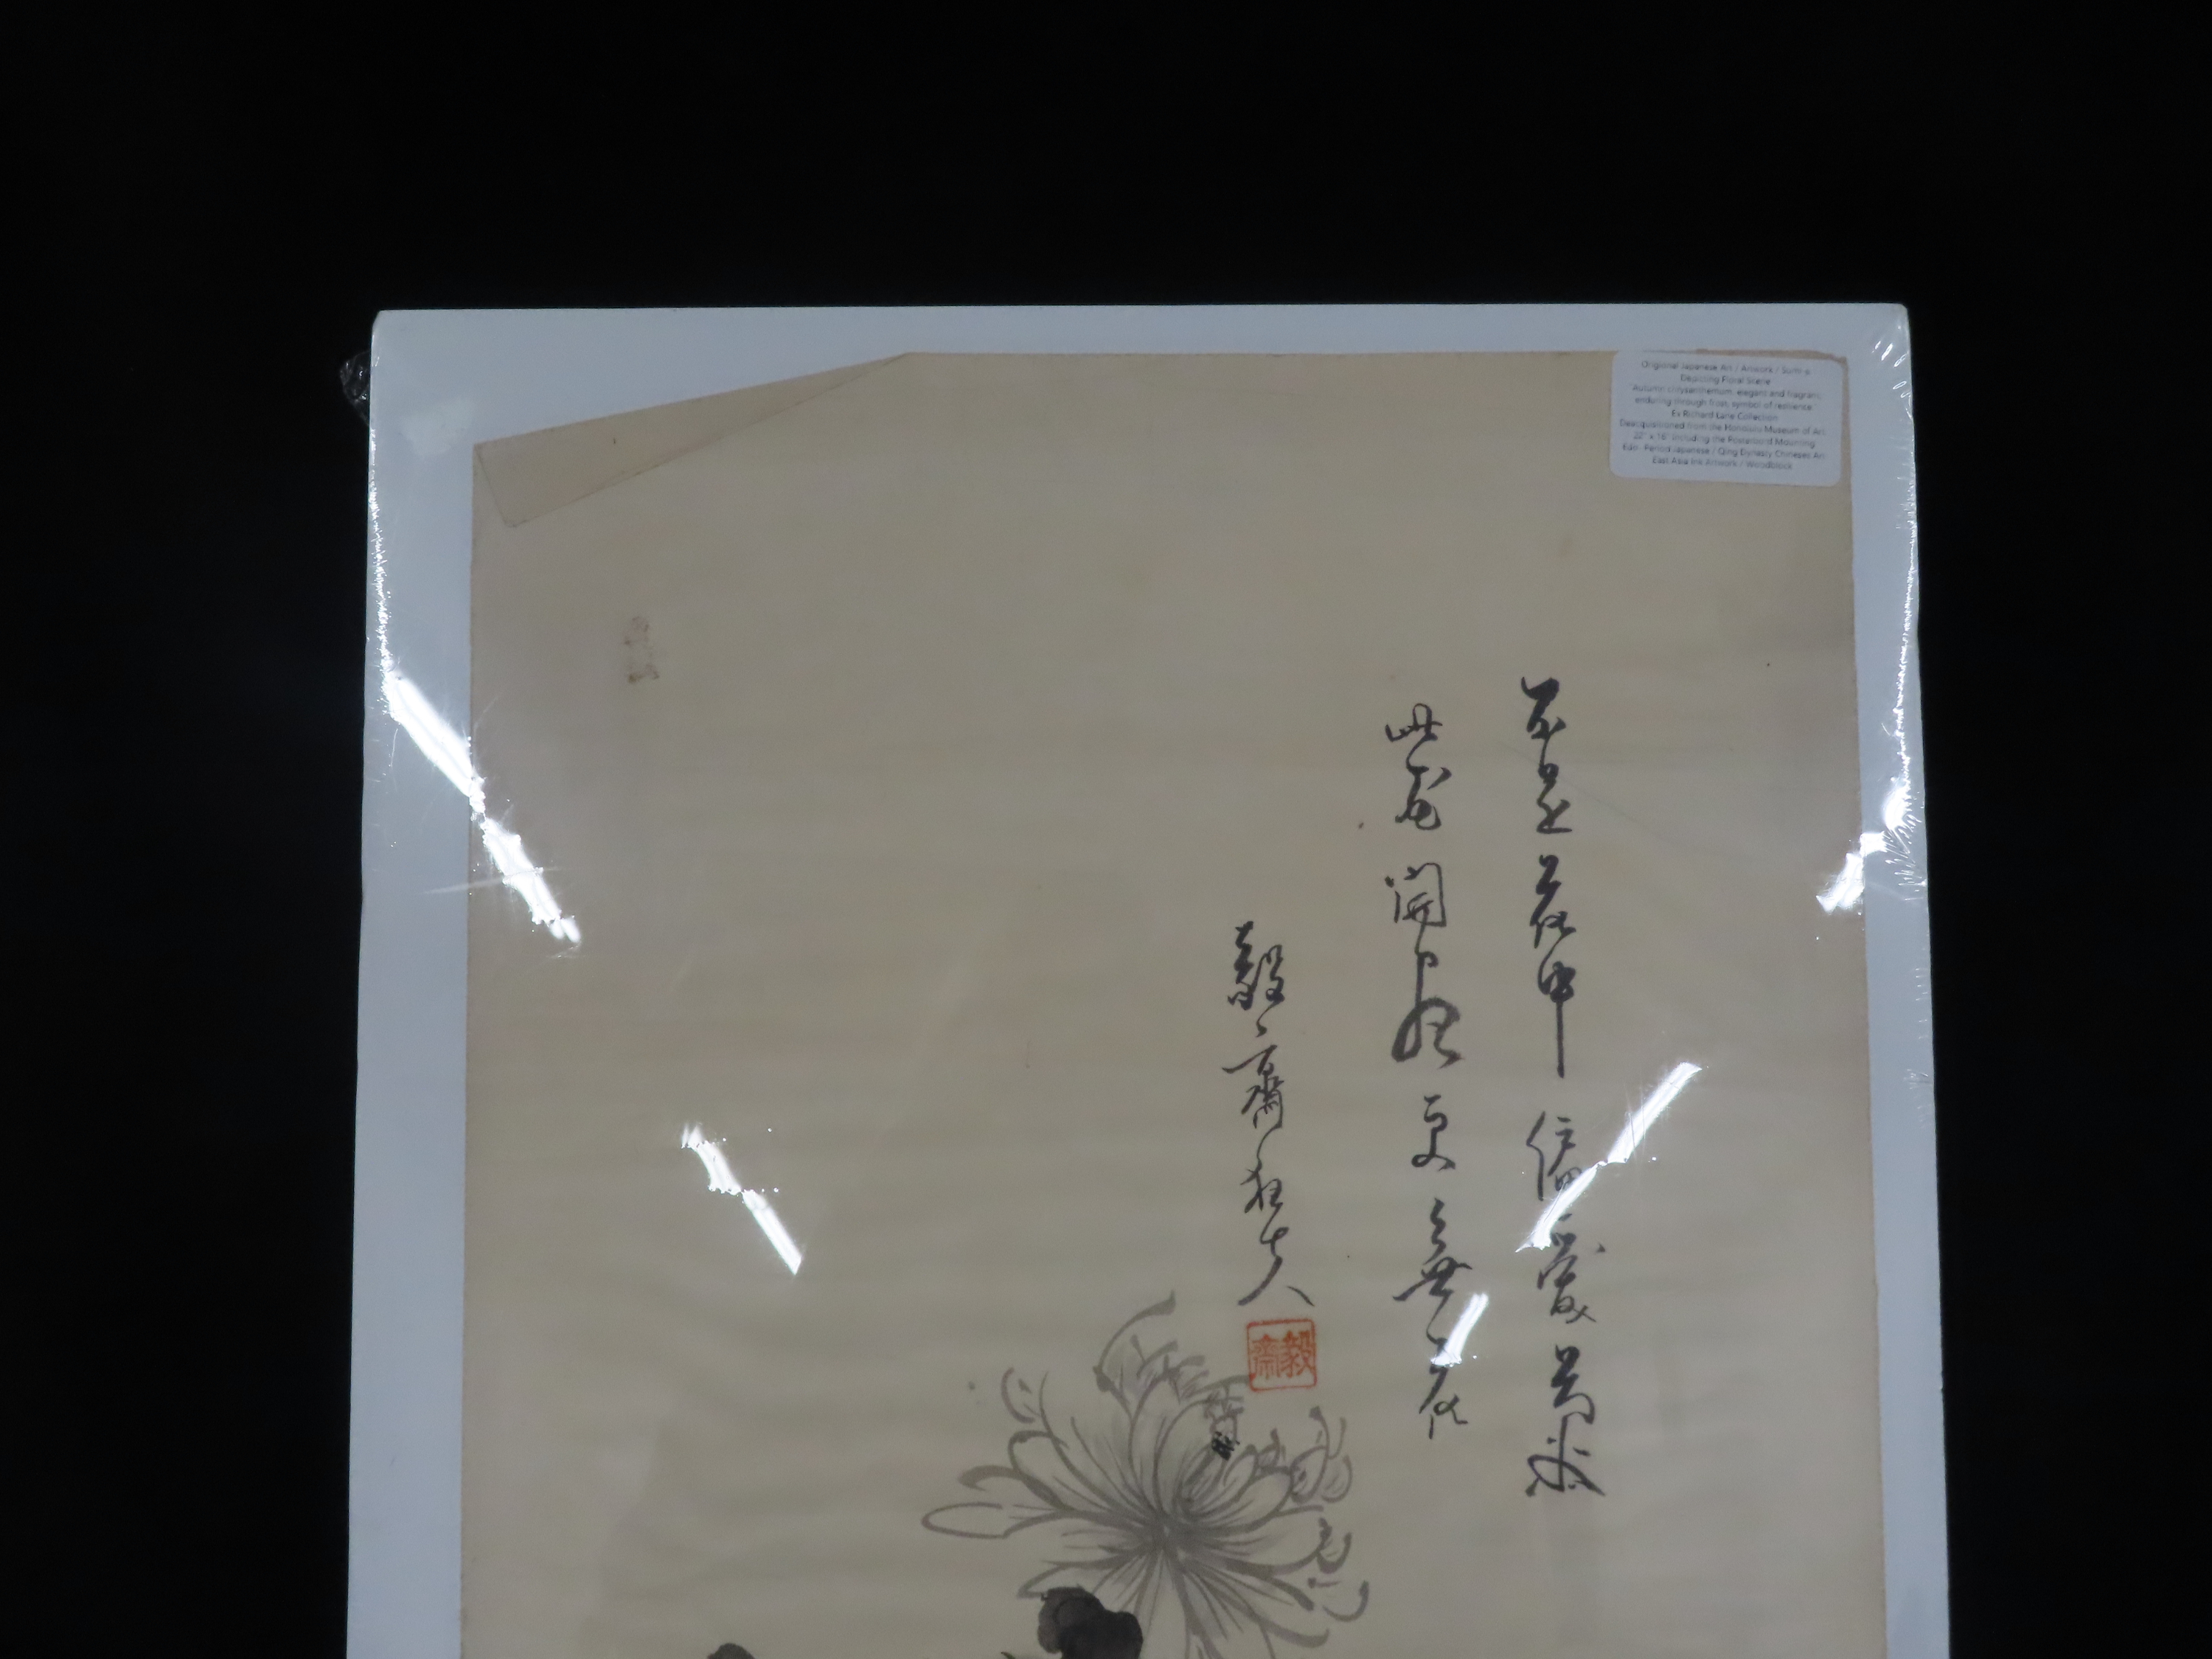 不是花中偏愛菊
此花開盡更無花
毅齋狂夫
毅齋
Origional Japanese Art / Artwork / Sumi-e
Depicting Floral Scene
"Autumn chrysanthemum: elegant and fragrant,
enduring through frost, symbol of resilience
Ex Richard Lane Collection
Deacquisitioned from the Honolulu Museum of Art
22" x 16" Including the Mounting
Edo- Period Japanese / Qing Dynasty Chineses Art
East Asia Ink Artwork / Woodblock